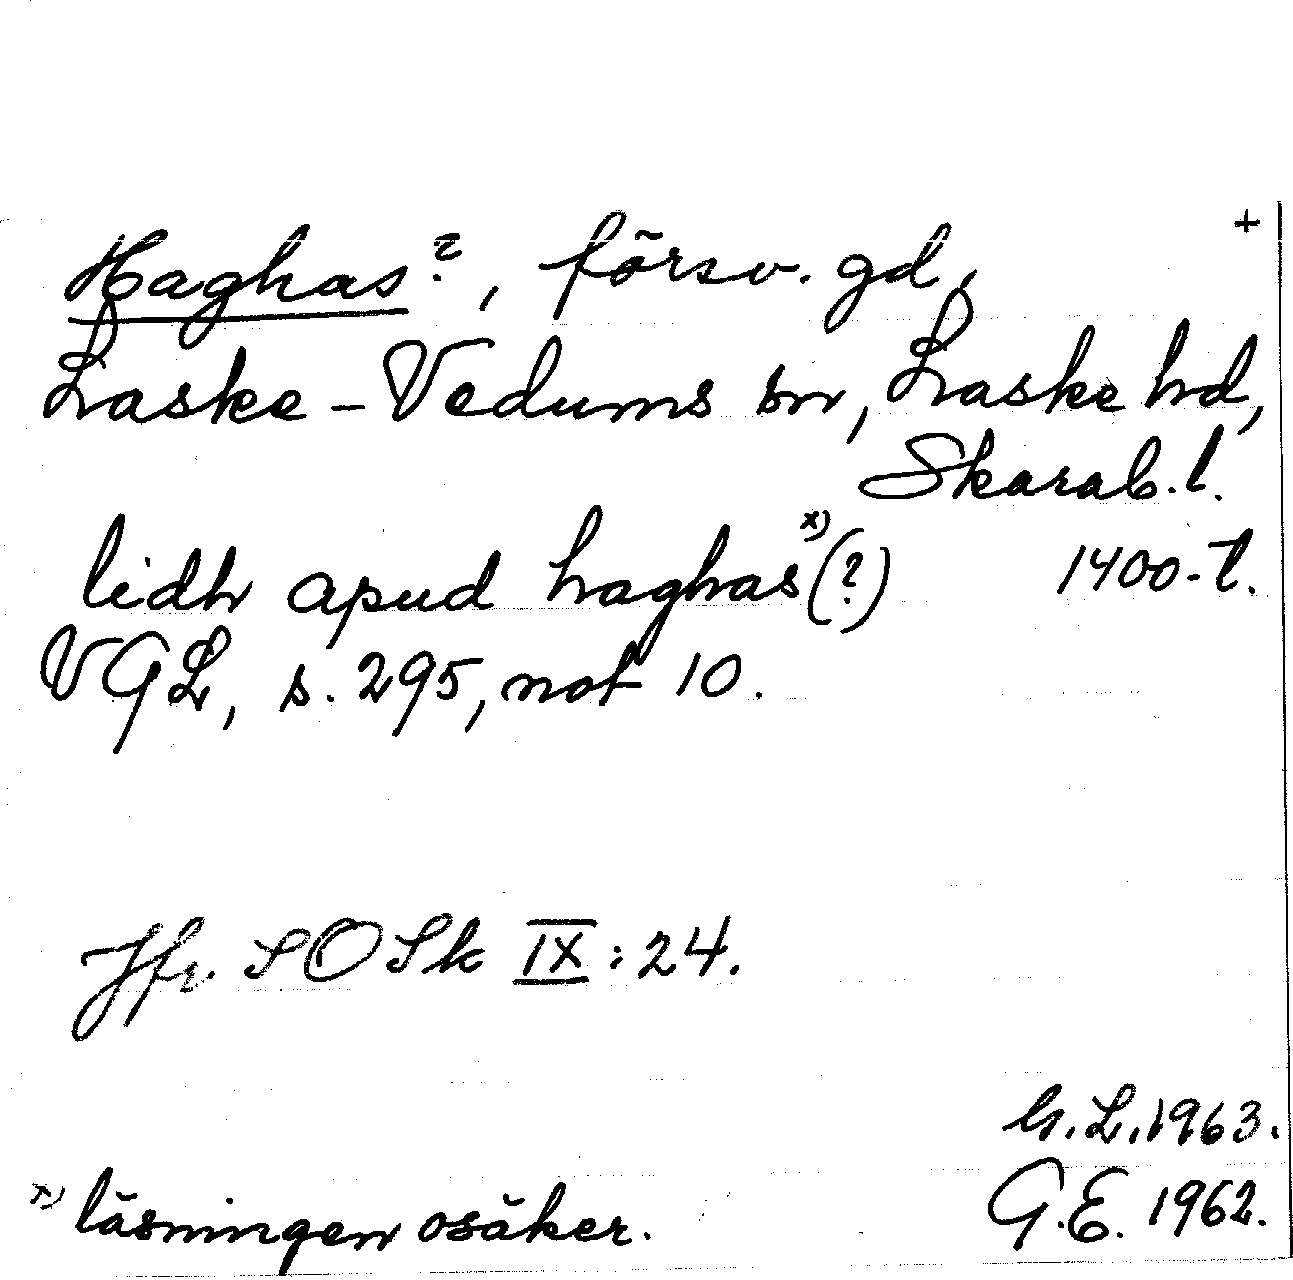 +
Haghas?, försv. gd,
Laske-Vedums sn, Laske hd,
Skarab. l.
lidh apud haghas x) (?) 1400-t.
VGL, s. 295, not 10.
Jfr. SOSk IX:24.
G.L. 1963.
x) läsningen osäker. G.E. 1962.